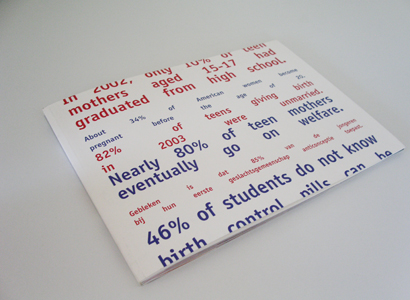 In 2002, only 10% of teen
mothers aged 15-17 had
graduated from high school.
About 34% of American women become
pregnant before the age of 20.
82% of teens giving birth
in 2003 were unmarried.
Nearly 80% of teen mothers
eventually go on welfare.
Gebleken is dat 85% van de jongeren
bij hun eerste geslachtsgemeenschap anticonceptie toepast.
46% of students do not know
birth control pills can be